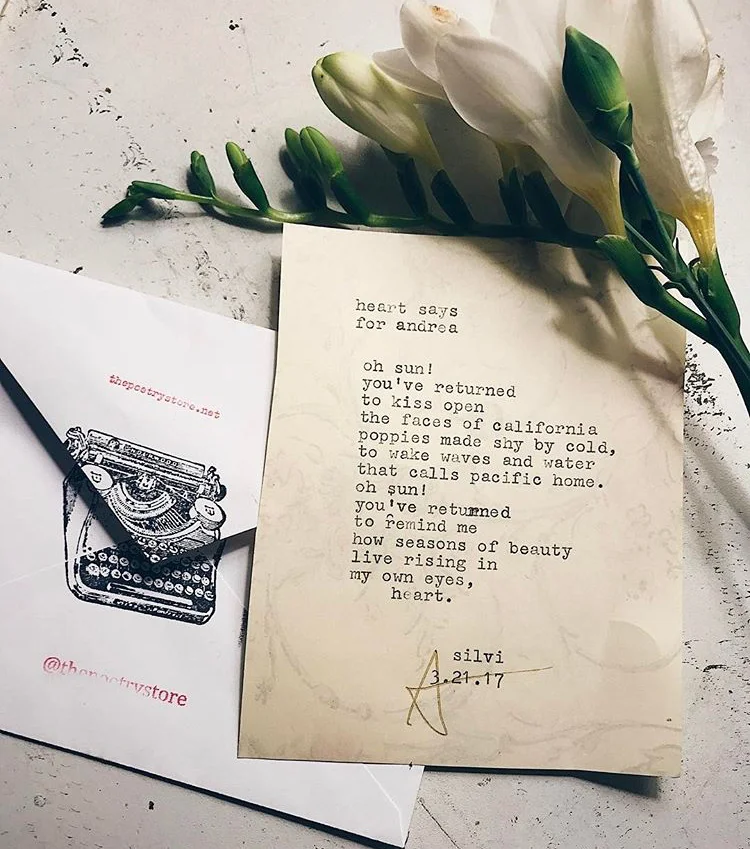 heart says
for andrea
oh sun!
you've returned
to kiss open
the faces of california
poppies made shy by cold,
to wake waves and water
that calls pacific home.
oh sun!
you've returned
to remind me
how seasons of beauty
live rising in
my own eyes,
heart.
silvi
3.21.17
thepoetrystore.net
@thepoetrystore